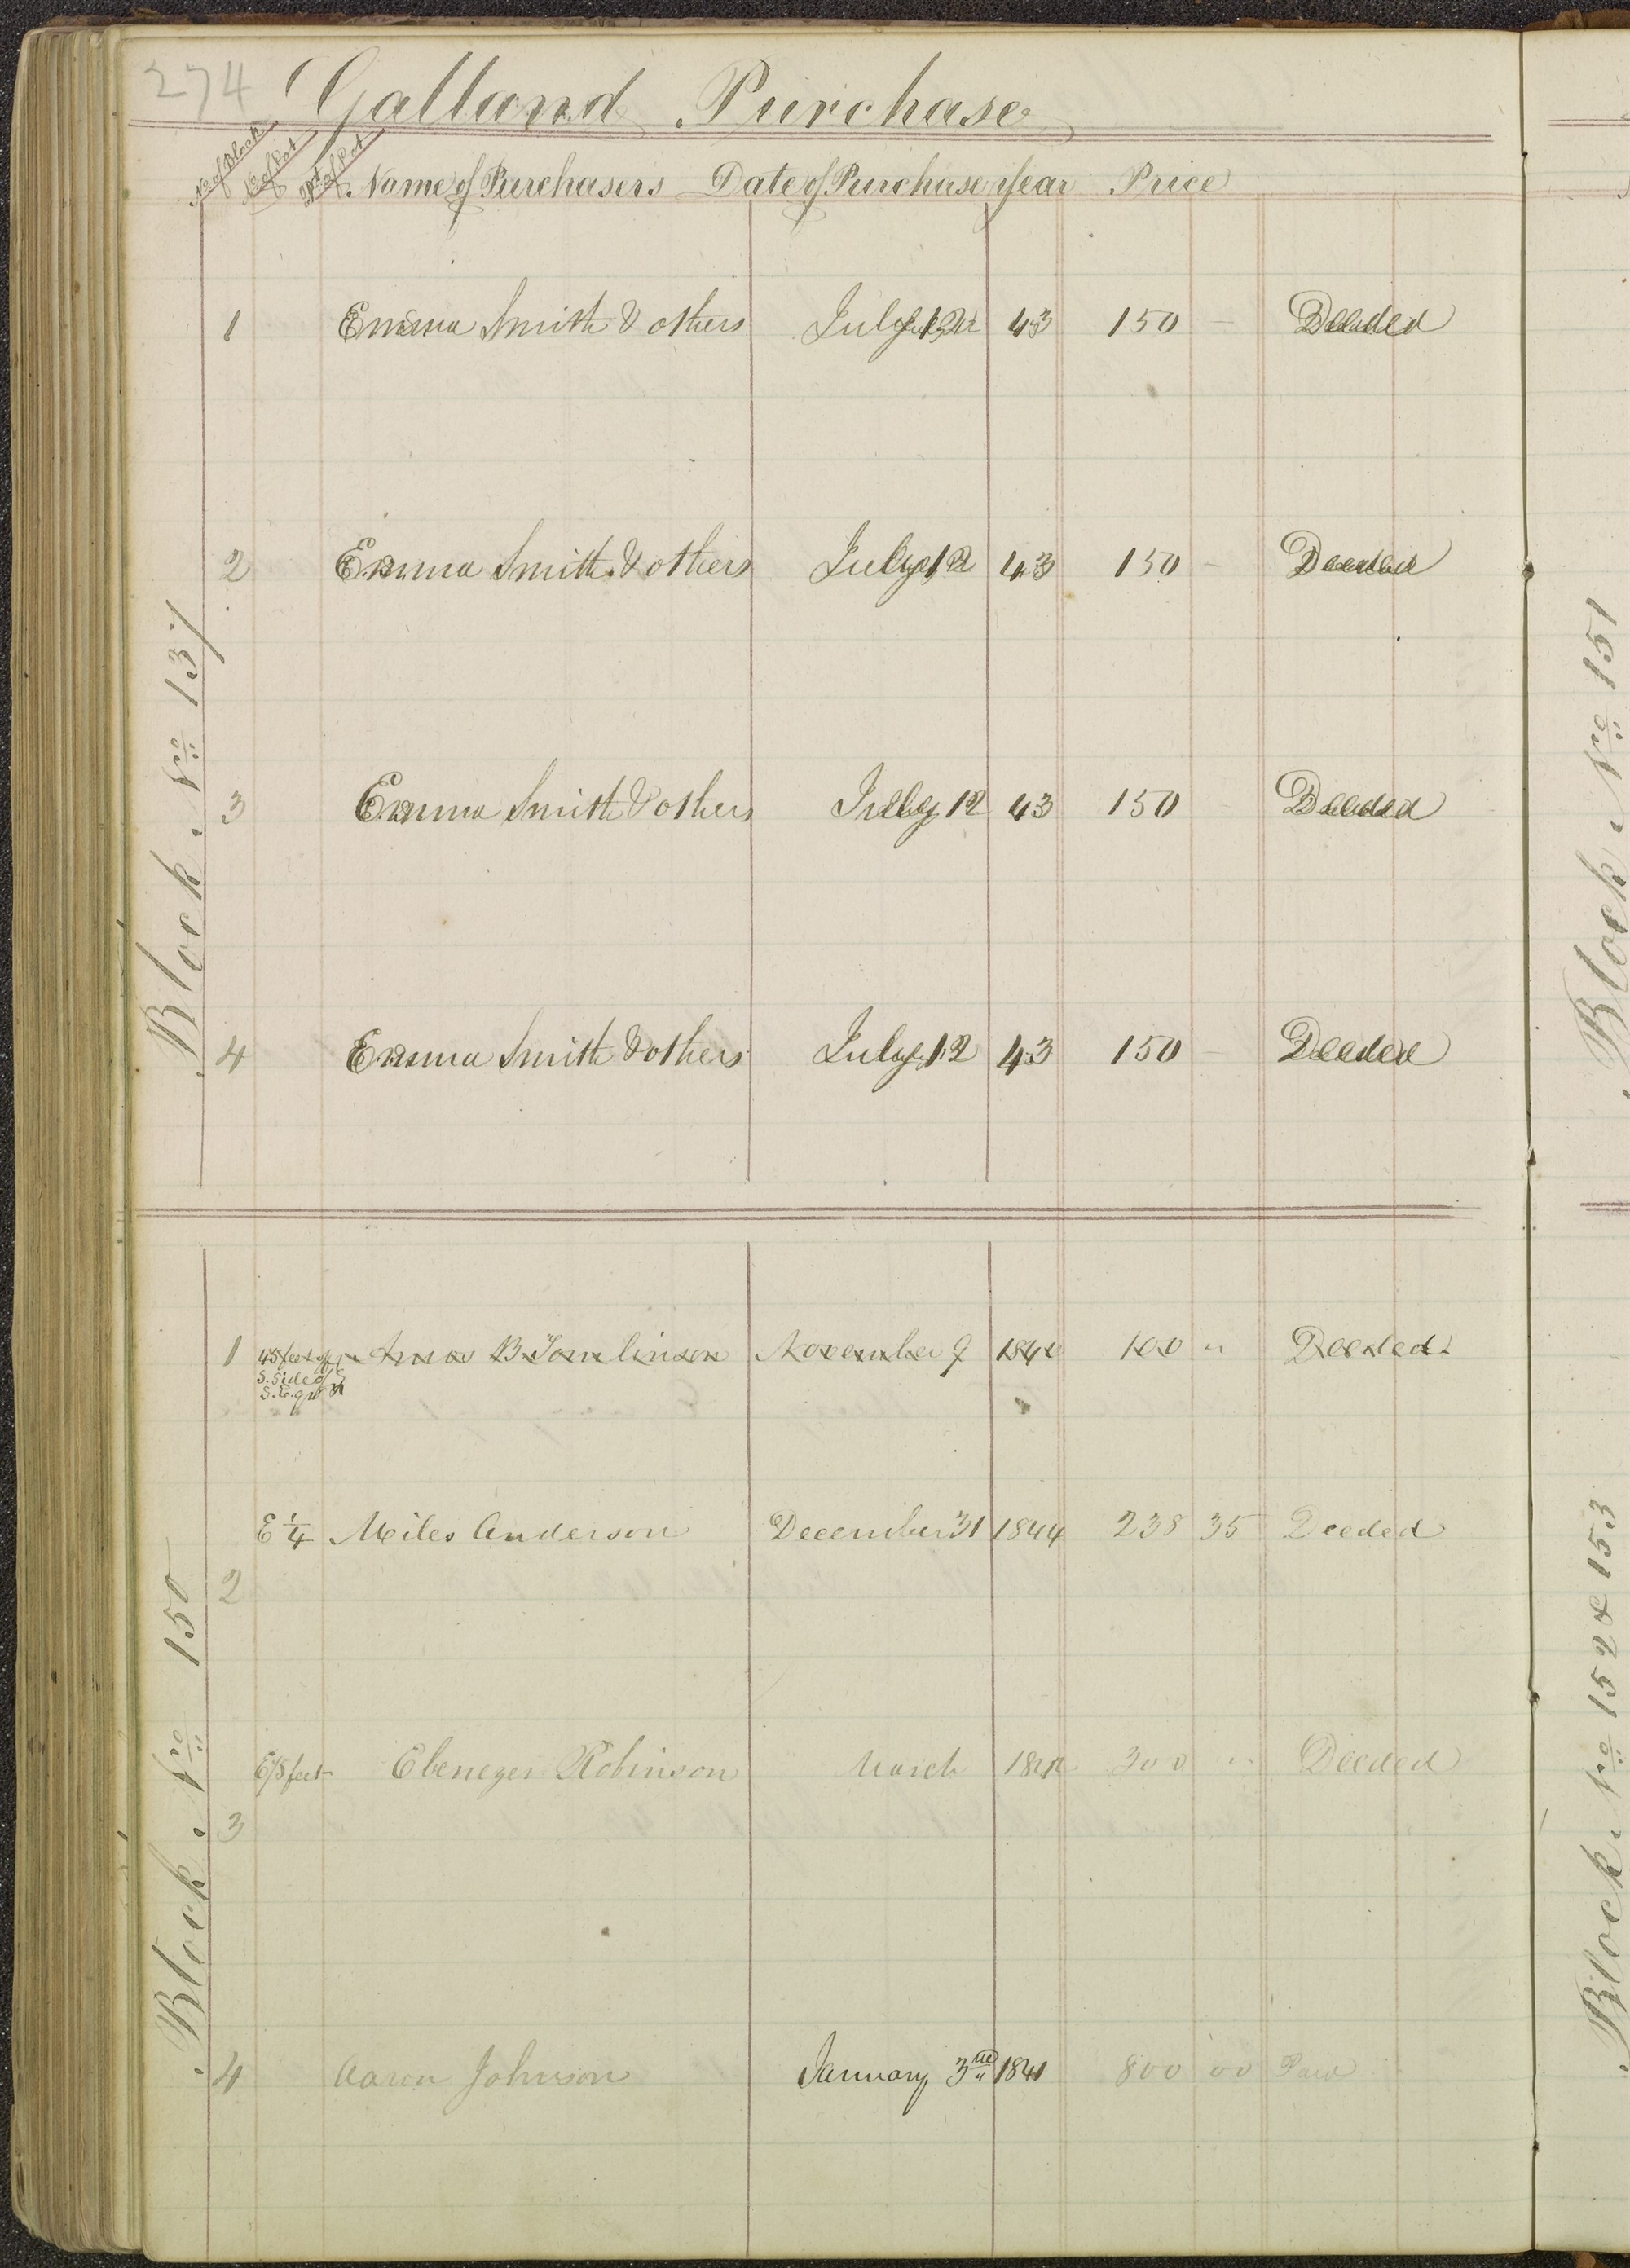 274 Galland Purchase
No of Block No of Lot Pt of Lot Name of Purchasers Date of Purchase Year Price
Block No 137
1 Emma Smith & others July 12 43 150 – Deeded
2 Emma Smith & others July 12 43 150 – Deeded
3 Emma Smith & others July 12 43 150 Deeded
4 Emma Smith & others July 12 43 150 – Deeded
Block No 150
1 45 feet off B Tomlinson November 9 184 100 " Deeded
S. Side of
S.E. qr
E 1/4 Miles Anderson December 31 1844 238 35 Deeded
2
feet Ebenezer Robinson March 184 300 " Deeded
3
4 Aaron Johnson January 3rd 1841 800 00 Paid
Block No 151
Block No 152 & 153